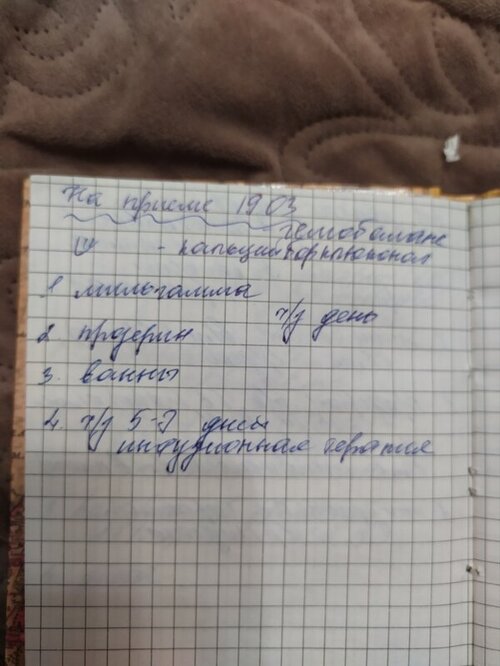 На приеме 19 03
гемобаланс
- кальций борглюконат
1 мильгамма
ч/з день
2. прозерин
3. ванны
4. ч/з 5-7 дней
инфузионная терапия